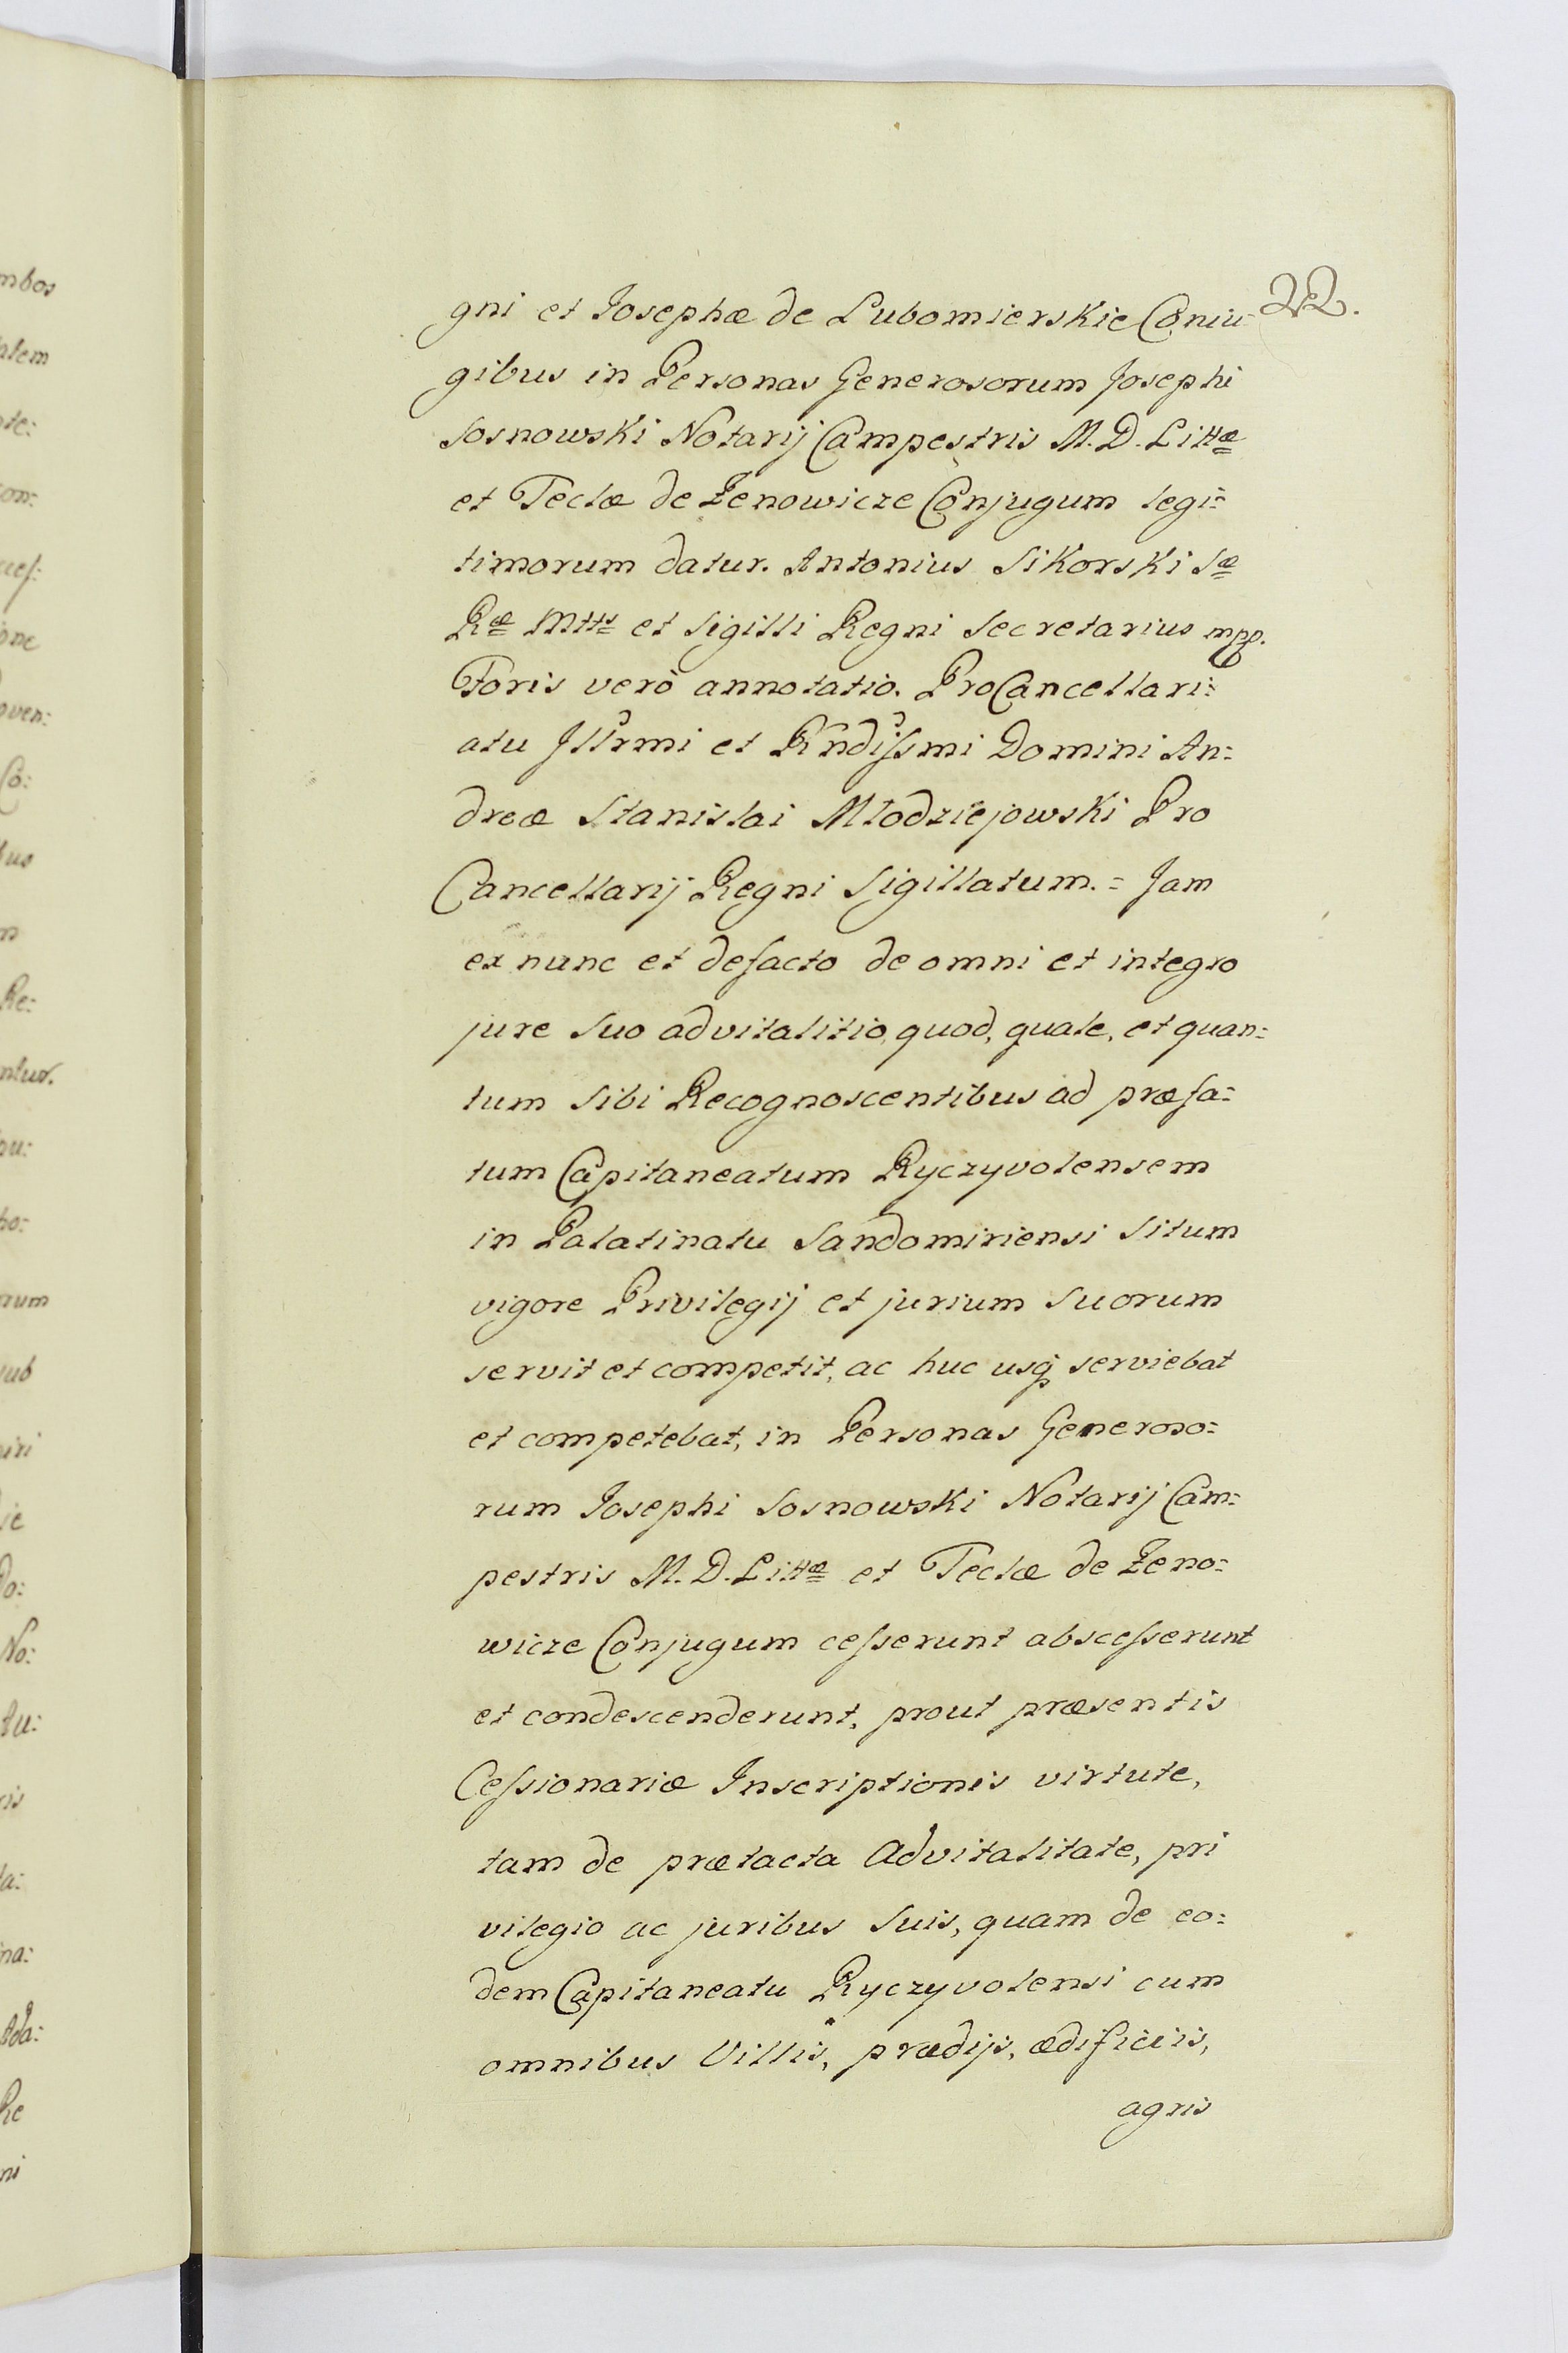 22.
gni et Josephæ de Lubomierskie Coniu-
gibus in Personas Generosorum Josephi
Sosnowski Notarij Campestris M. D. Littæ
et Teclæ de Zenowicze Conjugum legi=
timorum datur. Antonius Sikorski Sæ
Ræ Mttis et Sigilli Regni Secretarius mpp.
Foris verò annotatio. ProCancellari=
atu Jllrmi et Rndissmi Domini An=
dreæ Stanislai Młodziejowski Pro
Cancellarij Regni Sigillatum. = Jam
ex nunc et defacto de omni et integro
jure suo advitalitio, quod, quale, et quan=
tum sibi Recognoscentibus ad præfa=
tum Capitaneatum Ryczyvolensem
in Palatinatu Sandomiriensi situm
vigore Privilegij et jurium suorum
servit et competit, ac huc usq serviebat
et competebat, in Personas Generoso=
rum Josephi Sosnowski Notarij Cam=
pestris M. D. Littæ et Teclæ de Zeno=
wicze Conjugum cesserunt abscesserunt
et condescenderunt, prout præsentis
Cessionariæ Inscriptionis virtute,
tam de prætacta Advitalitate, pri
vilegio ac juribus suis, quam de eo=
dem Capitaneatu Ryczyvolensi cum
omnibus Villis, prædijs, ædificiis,
agris
mbos
atem
ote:
con:
cces:
ione
oven:
Co:
bus
m
Re:
ntur.
ou:
bo:
rum
sub
iri
ie
Do:
No:
tu:
ris
la:
na:
Ada:
Re
ni